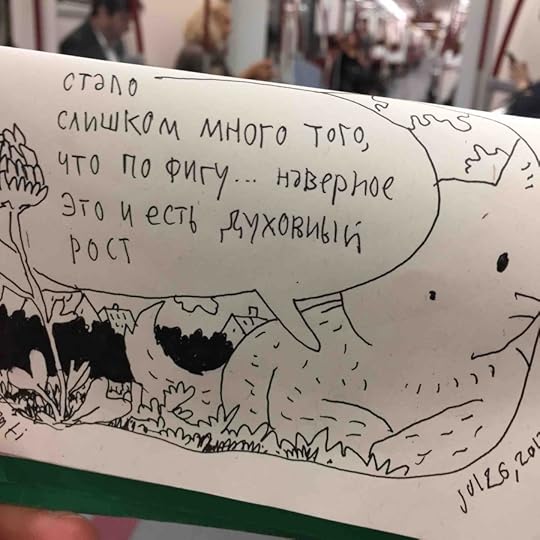 стало
слишком много того,
что по фигу... наверное
это и есть духовный
рост